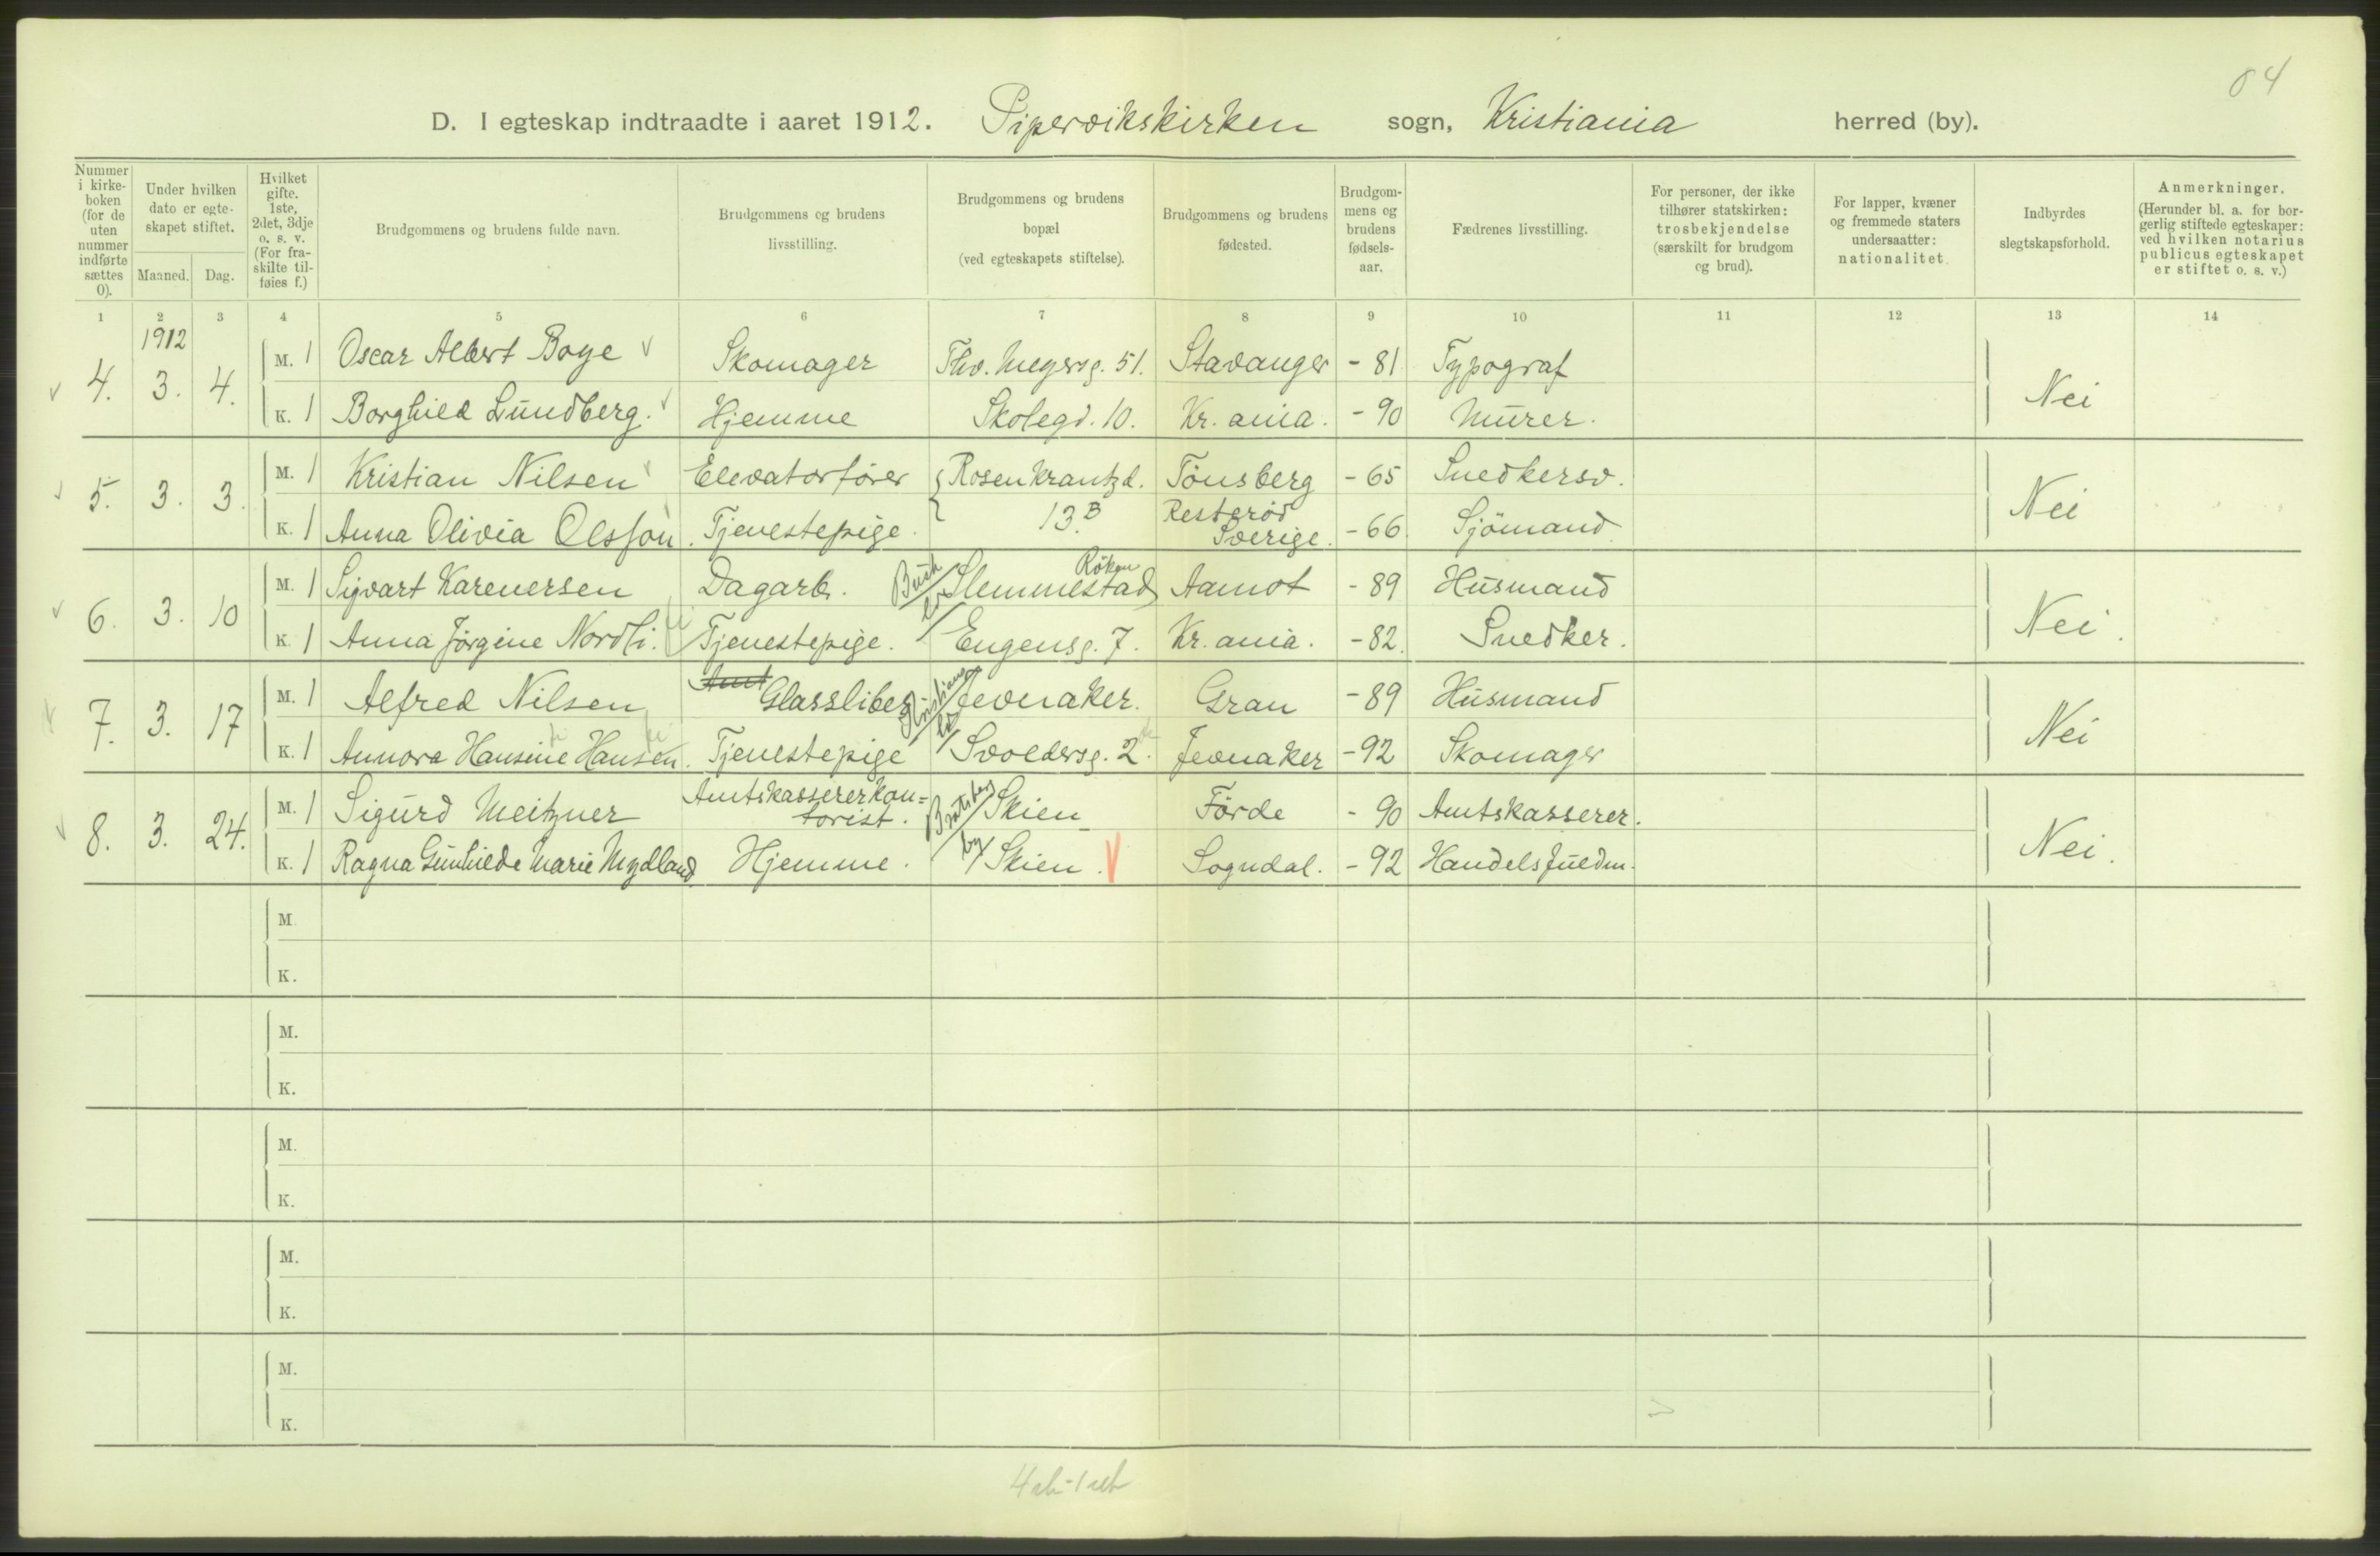 84
D. I egteskap indtraadte i aaret 1912. Pipervikskirken sogn, Kristiania herred (by).
Nummer i kirke- boken (for de uten nummer indførte sættes 0).
Under hvilken dato er egte- skapet stiftet.
Maaned. Dag.
Hvilket gifte. 1ste, 2det, 3dje o. s. v. (For fra- skilte til- føies f.)
Brudgommens og brudens fulde navn.
Brudgommens og brudens livsstilling.
Brudgommens og brudens bopæl (ved egteskapets stiftelse).
Brudgommens og brudens fødested.
Brudgom- mens og brudens fødsels- aar.
Fædrenes livsstilling.
For personer, der ikke tilhører statskirken: trosbekjendelse (særskilt for brudgom og brud).
For lapper, kvæner og fremmede staters undersaatter: nationalitet.
Indbyrdes slegtskapsforhold.
Anmerkninger. (Herunder bl. a. for bor- gerlig stiftede egteskaper: ved hvilken notarius publicus egteskapet er stiftet o. s. v.)
1 2 3 4 5 6 7 8 9 10 11 12 13 14
1912
4. 3. 4. M. 1 Oscar Albert Boye Skomager Thv. Meyersg. 51. Stavanger - 81 Typograf Nei
K. 1 Borghild Lundberg. Hjemme Skolegd. 10. Kr. ania. - 90 Murer.
5. 3. 3. M. 1 Kristian Nilsen Elevatorfører Rosenkrantzd. 13.B Tønsberg - 65 Snedkersv. Nei
K. 1 Anna Olivia Olsson. Tjenestepige. Resterød Sverige. - 66. Sjömand
6. 3. 10 M. 1 Sigvart Karenersen Dagarb. Slemmestad Röken Aamot - 89 Husmand Nei.
K. 1 Anna Jørgine Nordli. Tjenestepige. Eugensg. 7. Kr. ania. - 82. Snedker.
7. 3. 17 M. 1 Alfred Nilsen Amt Glassliber Kristians Jevnaker. Gran - 89 Husmand Nei
K. 1 Annora Hansine Hansen. Tjenestepige Svoldersg. 2. Jevnaker - 92 Skomager
8. 3. 24. M. 1 Sigurd Meitzner Amtskassererkon= torist. Bratsberg Skien Førde - 90 Amtskasserer. Nei.
K. 1 Ragna Gunhilde Marie Mydland Hjemme. by Skien. Sogndal. - 92 Handelsfuldm.
M.
K.
M.
K.
M.
K.
M.
K.
M.
K.